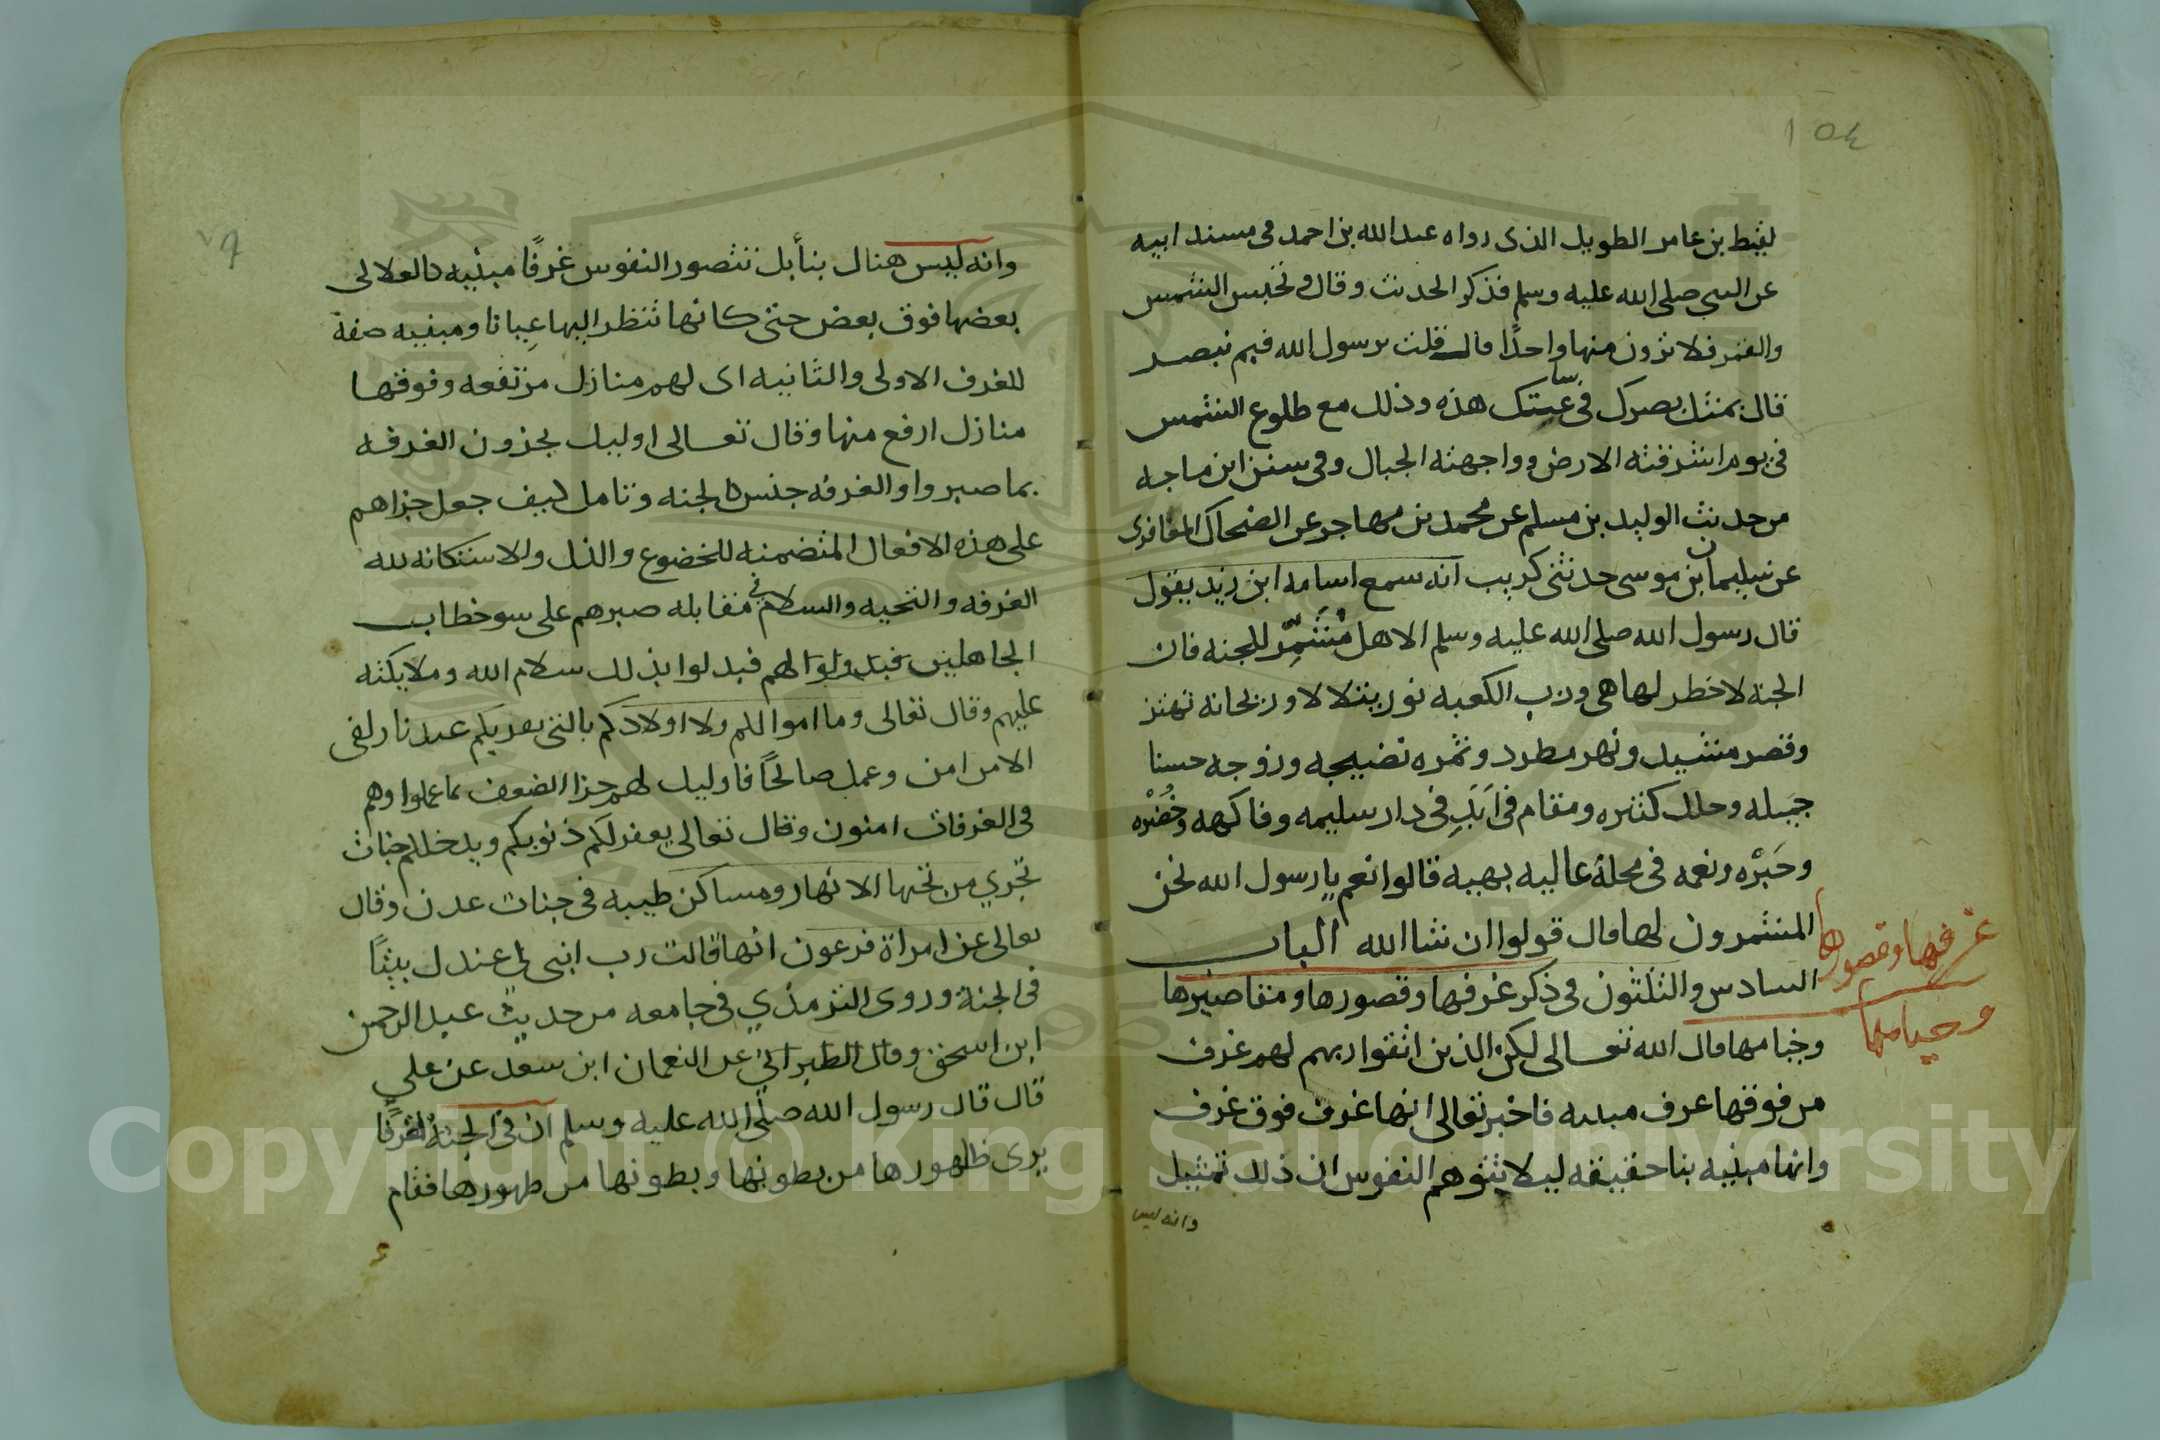 ١٥٤
لقيط بن عامر الطويل الذى رواه عبد الله بن احمد فى مسند ابيه
عن النبي صلى الله عليه وسلم فذكر الحديث وقال وتحبس الشمس
والقمر فلا ترون منها واحدًا قال قلت يرسول الله فبم نبصر
قال بمثل بصرك فى ساعتك هذه وذلك مع طلوع الشمس
فى يوم اشرقته الارض وواجهته الجبال وفى سنن ابن ماجه
من حديث الوليد بن مسلم عن محمد بن مهاجر عن الضحاك المعافرى
عن سليمان بن موسى حدثنى كريب انه سمع اسامه ابن زيد يقول
قال رسول الله صلى الله عليه وسلم الا هل مُشَمِّر للجنه فان
الجنه لا خطر لها هى ورب الكعبه نور يتلالا وريحانه تهتز
وقصر مشيد ونهر مطرد وثمره نضيجه وزوجه حسنا
جميله وحلل كثيره ومقام فى اَبَدٍ فى دار سليمه وفاكهه وخُضْره
وحَبْره ونعمه فى محلة عاليه بهيه قالوا نعم يا رسول الله نحن
المشمرون لها قال قولوا ان شا الله الباب
السادس والثلثون فى ذكر غرفها وقصورها ومقاصيرها
وخيامها قال الله تعالى لكن الذين اتقوا ربهم لهم غرف
من فوقها غرف مبنيه فاخبر تعالى انها غرف فوق غرف
وانها مبنيه بنا حقيقه ليلا تتوهم النفوس ان ذلك تمثيل
وانه ليس
غرفها وقصورها
وخيامها
وانه ليس هناك بنأ بل تتصور النفوس غرفًا مبنيه كالعلالى
بعضها فوق بعض حتى كانها تنظر اليها عِيانا ومبنيه صفة
للغرف الاولى والثانيه اى لهم منازل مرتفعه وفوقها
منازل ارفع منها وقال تعالى اوليك يجزون الغرفه
بما صبروا والغرفه جنس كالجنه وتامل كيف جعل جزاهم
على هذه الافعال المتضمنه للخضوع والذل والاستكانه لله
الغرفه والتحيه والسلام فى مقابله صبرهم على سو خطاب
الجاهلين لهم فبدلوا بذلك سلام الله وملايكته
عليهم وقال تعالى وما اموالكم ولا اولادكم بالتى تقربكم عندنا زلفى
الا من امن وعمل صالحًا فاوليك لهم جزا الضعف بما عملوا وهم
فى الغرفات امنون وقال تعالى يغفر لكم ذنوبكم ويدخلكم جنات
تجري من تحتها الانهار ومساكن طيبه فى جنات عدن وقال
تعالى عن امراة فرعون انها قالت رب ابنى لي عندك بيتًا
فى الجنة وروى الترمذي فى جامعه من حديث عبد الرحمن
ابن اسحق وقال الطبراني عن النعمان ابن سعد عن علي
قال قال رسول الله صلى الله عليه وسلم ان فى الجنة لغرفًا
يرى ظهورها من بطونها وبطونها من ظهورها فقام